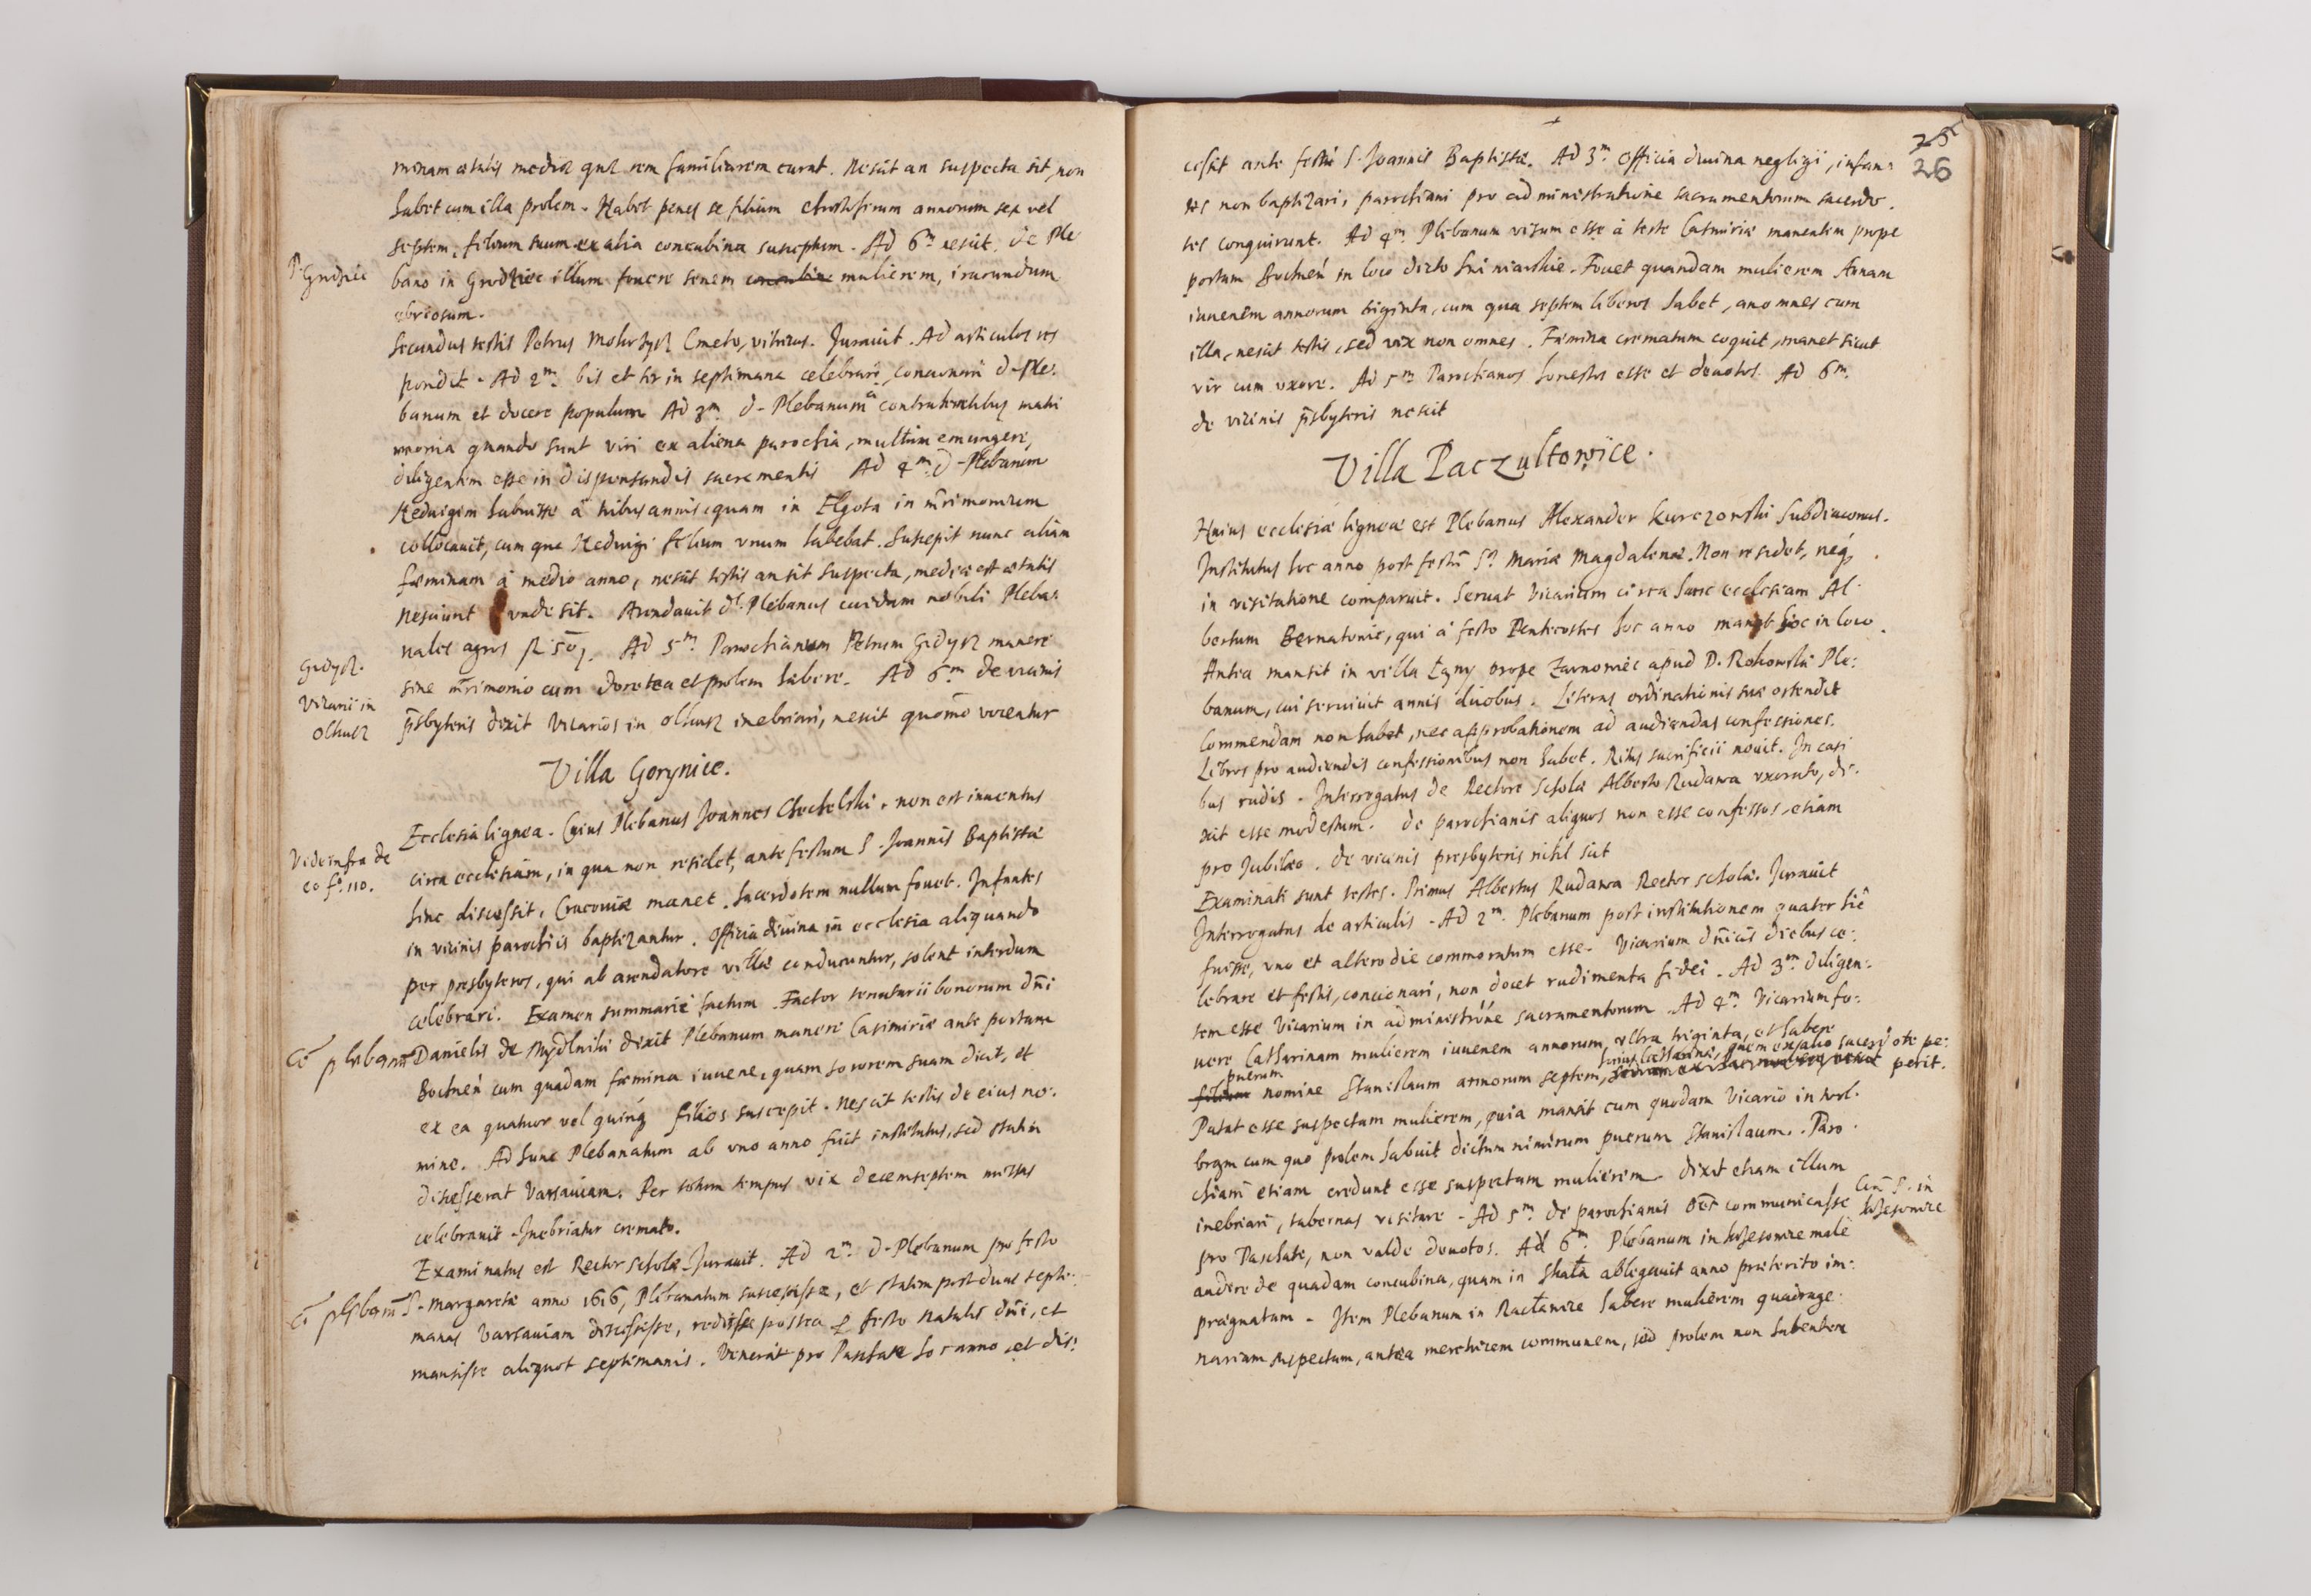 minam ætatis mediæ quæ rem familiarem curat. Nescit an suspecta sit, non
habet cum illa prolem. Habet penes se filium Christoferum annorum sex vel
septem, filium suum ex alia concubina susceptum. Ad 6m nescit. de Ple
P. Grodziec
bano in Grodziec illum fouere senem concubin mulierem, iracundum
ebriosum.
Secundus testis Petrus Cmeto, viturus. Jurauit. Ad articulos res
pondit. Ad 2m bis et ter in septimana celebrari, concionari d. Ple:
banum et docere populum Ad 3m d. Plebanum a contrahentibus matri
monia quando sunt viri ex aliena parochia, multum emungere,
diligentem esse in dispensandis sacramentis Ad 4m d. Plebanum
Heduigem habuisse à tribus annis, quam in Elgota in mrimonium
collocauit, cum qua Heduigi filium vnum habebat. Suscepit nunc aliam
fæminam à medio anno, nescit testis an sit suspecta, mediæ est ætatis
nesciunt vnde sit. Arendauit d. Plebanus cuidam nobili Pleba:
nales agros Ad 5m Parochianum Petrum Gidysz manere
Gidysz.
sine mrimonio cum Dorotea et prolem habere. Ad 6m de vicinis
Vicarii in
Olkusz
psbyteris dixit Vicarios in Olkusz inebriari, nescit quomo vocentur
Villa Gorynice.
Ecclesia lignea. Cuius Plebanus Joannes Chechelski, non est inuentus
Vide infra de
eo fo. 110.
circa ecclesiam, in qua non residet, ante festum S. Joannis Baptistæ
hinc discessit, Cracouiæ manet. Sacerdotem nullum fouet. Infantes
in vicinis parochiis baptizantur. Officia diuina in ecclesia aliquando
per presbyteros, qui ab arendatore villæ conducuntur, solent interdum
celebrari. Examen summarie factum. Factor tenutarii bonorum dni
Co plebanu
Danielis de Mydlniki dixit Plebanum manere Casimiriæ ante portam
Bochneń cum quadam fæmina iuuene, quam sororem suam dicit, et
ex ea quatuor vel quinq filios suscepit. Nescit testis de eius no:
mine. Ad hunc Plebanatum ab vno anno fuit institutus, sed statim
discesserat Varsauiam. Per totum tempus vix decemseptem missas
celebrauit. Inebriatur cremato.
Examinatus est Rector scholæ. Jurauit. Ad 2m d. Plebanum pro festo
Co plebanu
S. Margaretæ anno 1616, Plebanatum suscepisse, et statim post duas septi:
manas Varsauiam discessisse, redisse postea p festo Natalis dni, et
mansisse aliquot septimanis. Venerat pro Paschate hoc anno et dis:
25
26
cessit ante festu S. Joannis Baptistæ. Ad 3m officia diuina negligi, infan:
tes non baptizari, parochiani pro administratione sacramentorum sacerdo.
tes conquirunt. Ad 4m Plebanum visum esse à teste Casimiriæ manentem prope
portam Bochneń in loco dicto Fouet quandam mulierem Annam
iuuenem annorum triginta, cum qua septem liberos habet, an omnes cum
illa, nescit testis, sed vix non omnes. Fæmina crematum coquit, manet sicut
vir cum vxore. Ad 5m Parochianos honestos esse et deuotos. Ad 6m.
de vicinis psbyteris nescit
Villa Paczułtowice.
Huius ecclesiæ ligneæ est Plebanus Alexander Kurczowski Subdiaconus.
Institutus hoc anno post festu Sæ Mariæ Magdalenæ. Non residet, neq
in visitatione comparuit. Seruat Vicarium circa hanc ecclesiam Al:
bertum Bernatowic, qui à festo Pentecostes hoc anno manet hoc in loco.
Antea mansit in villa Łany prope Żarnowiec apud D. Rokowski Ple:
banum, cui seruiuit annis duobus. Literas ordinationis suæ ostendit
Commendam non habet, nec approbationem ad audiendas confessiones.
Libros pro audiendis confessionibus non habet. Ritus sacrificii nouit. In casi
bus rudis. Interrogatus de Rectore Scholæ Alberto Rudawa vxorato, di:
xit esse modestum. de parochianis aliquos non esse confessos, etiam
pro Jubilæo. de vicinis presbyteris nihil scit
Examinati sunt testes. Primus Albertus Rudawa Rector scholæ. Jurauit
Interrogatus de articulis. Ad 2m Plebanum post institutionem quater hic
fuisse, vno et altero die commoratum esse. Vicarium dnicis diebus ce:
lebrare et festis, concionari, non docet rudimenta fidei. Ad 3m diligen:
tem esse Vicarium in administrone sacramentorum. Ad 4m Vicarium fo:
uere Catharinam mulierem iuuenem annorum, vltra triginta, et habere
puerum
filius Catharinæ, quem ex alio sacerdote pe:
filium nomine Stanislaum annorum septem, perit.
Putat esse suspectam mulierem, quia mansit cum quodam Vicario in Wol.
brom cum quo prolem habuit dictum nimirum puerum Stanislaum. Paro
chiani etiam credunt esse suspectam mulierem. Dixit etiam illum
inebriari, tabernas visitare. Ad 5m de parochianis oes communicasse
pro Paschate, non valde deuotos. Ad 6m Plebanum in male
audire de quadam concubina, quam in Skała ablegauit anno præterito im:
prægnatam. Item Plebanum in Racławice habere mulierem quadrage
nariam suspectam, antea meretricem communem, sed prolem non habentem